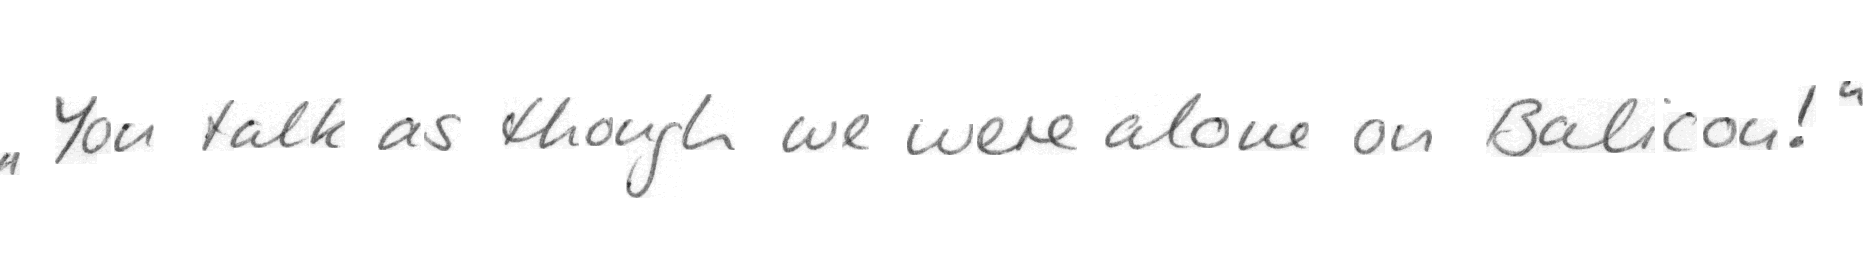 „You talk as though we were alone on Balicon!“